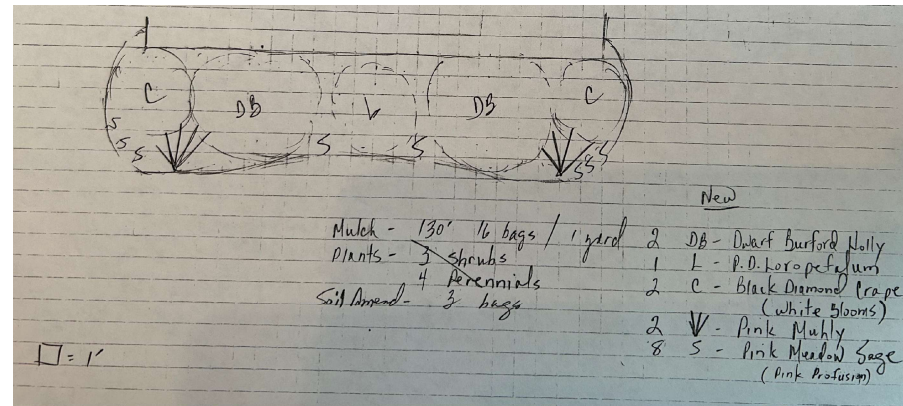 C DB L DB C
S S S S S S S S
New
Mulch - 130' 16 bags / 1 yard
Plants - 3 shrubs
4 Perennials
Soil Amend - 3 bags
2 DB - Dwarf Burford Holly
1 L - P.D. Loropetalum
2 C - Black Diamond Crape
(White Blooms)
2 - Pink Muhly
8 S - Pink Meadow Sage
(Pink Profusion)
= 1'